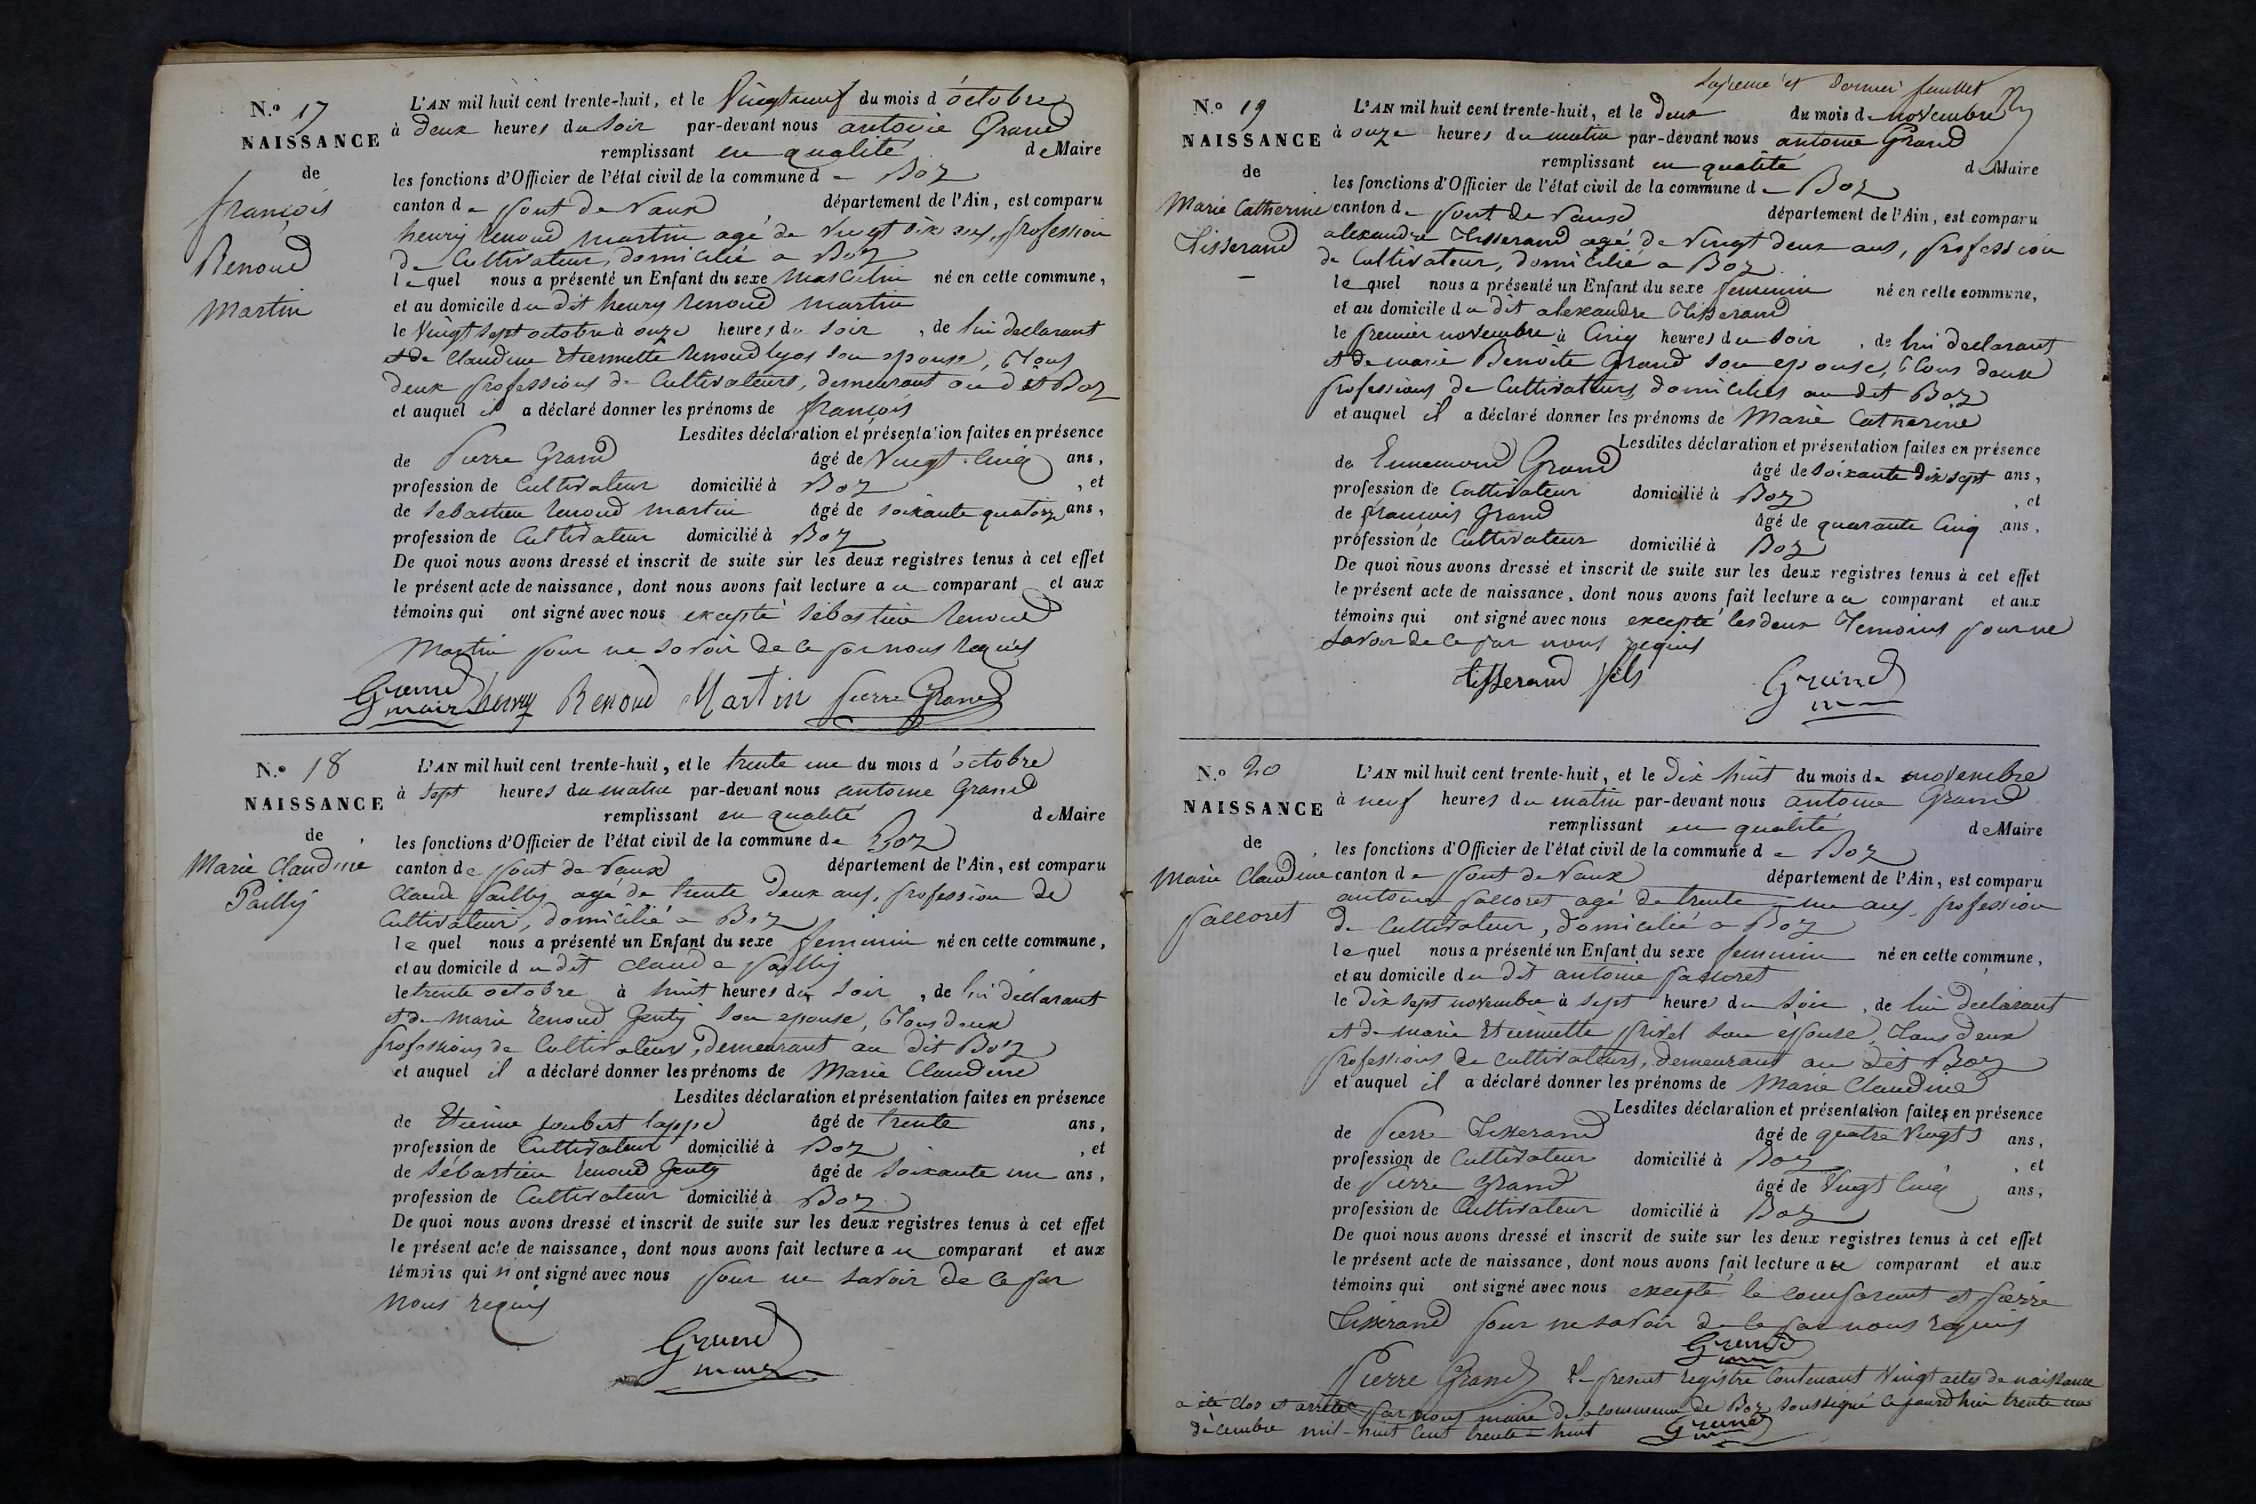 N.o 17
NAISSANCE
de
françois
Renoud
Martin
L'AN mil huit cent trente-huit, et le Vingt neuf du mois d'octobre
à deux heures du Soir par-devant nous antoine Grand
remplissant en qualité de Maire
les fonctions d'Officier de l'état civil de la commune de Boz
canton de pont de Vaux département de l'Ain, est comparu
henry renoud martin agé de Vingt dix ans, profession
de Cultivateur, domicilié a Boz
lequel nous a présenté un Enfant du sexe masculin né en cette commune,
et au domicile du dit henry renoud martin
le Vingt sept octobre à onze heures du soir, de lui declarant
et de Claudine Etiennette Renoud lyos son epouse, Tous
deux professions de Cultivateurs, demeurant au dit Boz
et auquel il a déclaré donner les prénoms de françois
Lesdites déclaration et présentation faites en présence
de Pierre Grand âgé de Vingt Cinq ans,
profession de Cultivateur domicilié à Boz, et
de Sebastien renoud martin âgé de soixante quatorz ans,
profession de Cultivateur domicilié à Boz
De quoi nous avons dressé et inscrit de suite sur les deux registres tenus à cet effet
le présent acte de naissance, dont nous avons fait lecture au comparant et aux
témoins qui ont signé avec nous excepté sébastien Renoud
Martin pour ne savoir de ce par nous requis
Grand maire henry Renoud Martin pierre Grand
N.o 18
NAISSANCE
de
Marie Claudine
Pailly
L'AN mil huit cent trente-huit, et le trente une du mois d'octobre
à sept heures du matin par-devant nous antoine Grand
remplissant en qualité de Maire
les fonctions d'Officier de l'état civil de la commune de Boz
canton de pont de Vaux département de l'Ain, est comparu
Claude pailly agé de trente deux ans, profession de
Cultivateur, domicilié a Boz
lequel nous a présenté un Enfant du sexe feminin né en cette commune,
et au domicile du dit claude pailly
le trente octobre à huit heures du soir, de lui déclarant
et de marie renoud Genty son epouse, Tous deux
professions de Cultivateurs, demeurant au dit Boz
et auquel il a déclaré donner les prénoms de Marie Claudine
Lesdites déclaration et présentation faites en présence
de Etienne joubert lappe âgé de trente ans,
profession de Cultivateur domicilié à Boz, et
de Sébastien renoud Genty âgé de soixante un ans,
profession de Cultivateur domicilié à Boz
De quoi nous avons dressé et inscrit de suite sur les deux registres tenus à cet effet
le présent acte de naissance, dont nous avons fait lecture au comparant et aux
témoins qui n'ont signé avec nous pour ne savoir de ce par
nous requis
Grand
maire
et Dernier feuillet
N.o 19
NAISSANCE
de
Marie Catherine
Tisserand
L'AN mil huit cent trente-huit, et le deux du mois de novembre
à onze heures du matin par-devant nous antoine Grand
remplissant en qualité de Maire
les fonctions d'Officier de l'état civil de la commune de Boz
canton de pont de Vaux département de l'Ain, est comparu
alexandre Tisserand agé de Vingt deux ans, profession
de Cultivateur, domicilié a Boz
lequel nous a présenté un Enfant du sexe feminin né en cette commune,
et au domicile du dit alexandre Tisserand
le premier novembre à Cinq heures du soir, de lui declarant
et de marie Benoite Grand son epouse, Tous deux
professions de Cultivateurs domiciliés au dit Boz
et auquel il a déclaré donner les prénoms de Marie Catherine
Lesdites déclaration et présentation faites en présence
de Ennemond Grand âgé de soixante dix sept ans,
profession de Cultivateur domicilié à Boz, et
de françois Grand âgé de quarante Cinq ans,
profession de Cultivateur domicilié à Boz
De quoi nous avons dressé et inscrit de suite sur les deux registres tenus à cet effet
le présent acte de naissance, dont nous avons fait lecture au comparant et aux
témoins qui ont signé avec nous excepté les deux Temoins pour ne
savoir de ce par nous requis
tisserand fils Grand
N.o 20
NAISSANCE
de
Marie Claudine
pacoret
L'AN mil huit cent trente-huit, et le dix huit du mois de novembre
à neuf heures du matin par-devant nous antoine Grand
remplissant en qualité de Maire
les fonctions d'Officier de l'état civil de la commune de Boz
canton de pont de Vaux département de l'Ain, est comparu
antoine paccoret agé de trente un ans, profession
de Cultivateur, domicilié a Boz
lequel nous a présenté un Enfant du sexe feminin né en cette commune,
et au domicile du dit antoine paccoret
le dix sept novembre à sept heures du soir, de lui declarant
et de marie Etiennette privel son epouse, Tous deux
professions de cultivateurs, demeurant au dit Boz
et auquel il a déclaré donner les prénoms de Marie Claudine
Lesdites déclaration et présentation faites en présence
de Pierre Tisserand âgé de quatre Vingts ans,
profession de Cultivateur domicilié à Boz, et
de Pierre Grand âgé de Vingt Cinq ans,
profession de Cultivateur domicilié à Boz
De quoi nous avons dressé et inscrit de suite sur les deux registres tenus à cet effet
le présent acte de naissance, dont nous avons fait lecture au comparant et aux
témoins qui ont signé avec nous excepté le comparant et pierre
Tisserand pour ne savoir de ce par nous requis
Grand
Pierre Grand Le present registre Contenant Vingt actes de naissance
a été clos et arrêté par nous maire de la commune de Boz soussigné ce jourd'hui trente un
décembre mil-huit cent trente-huit Grand